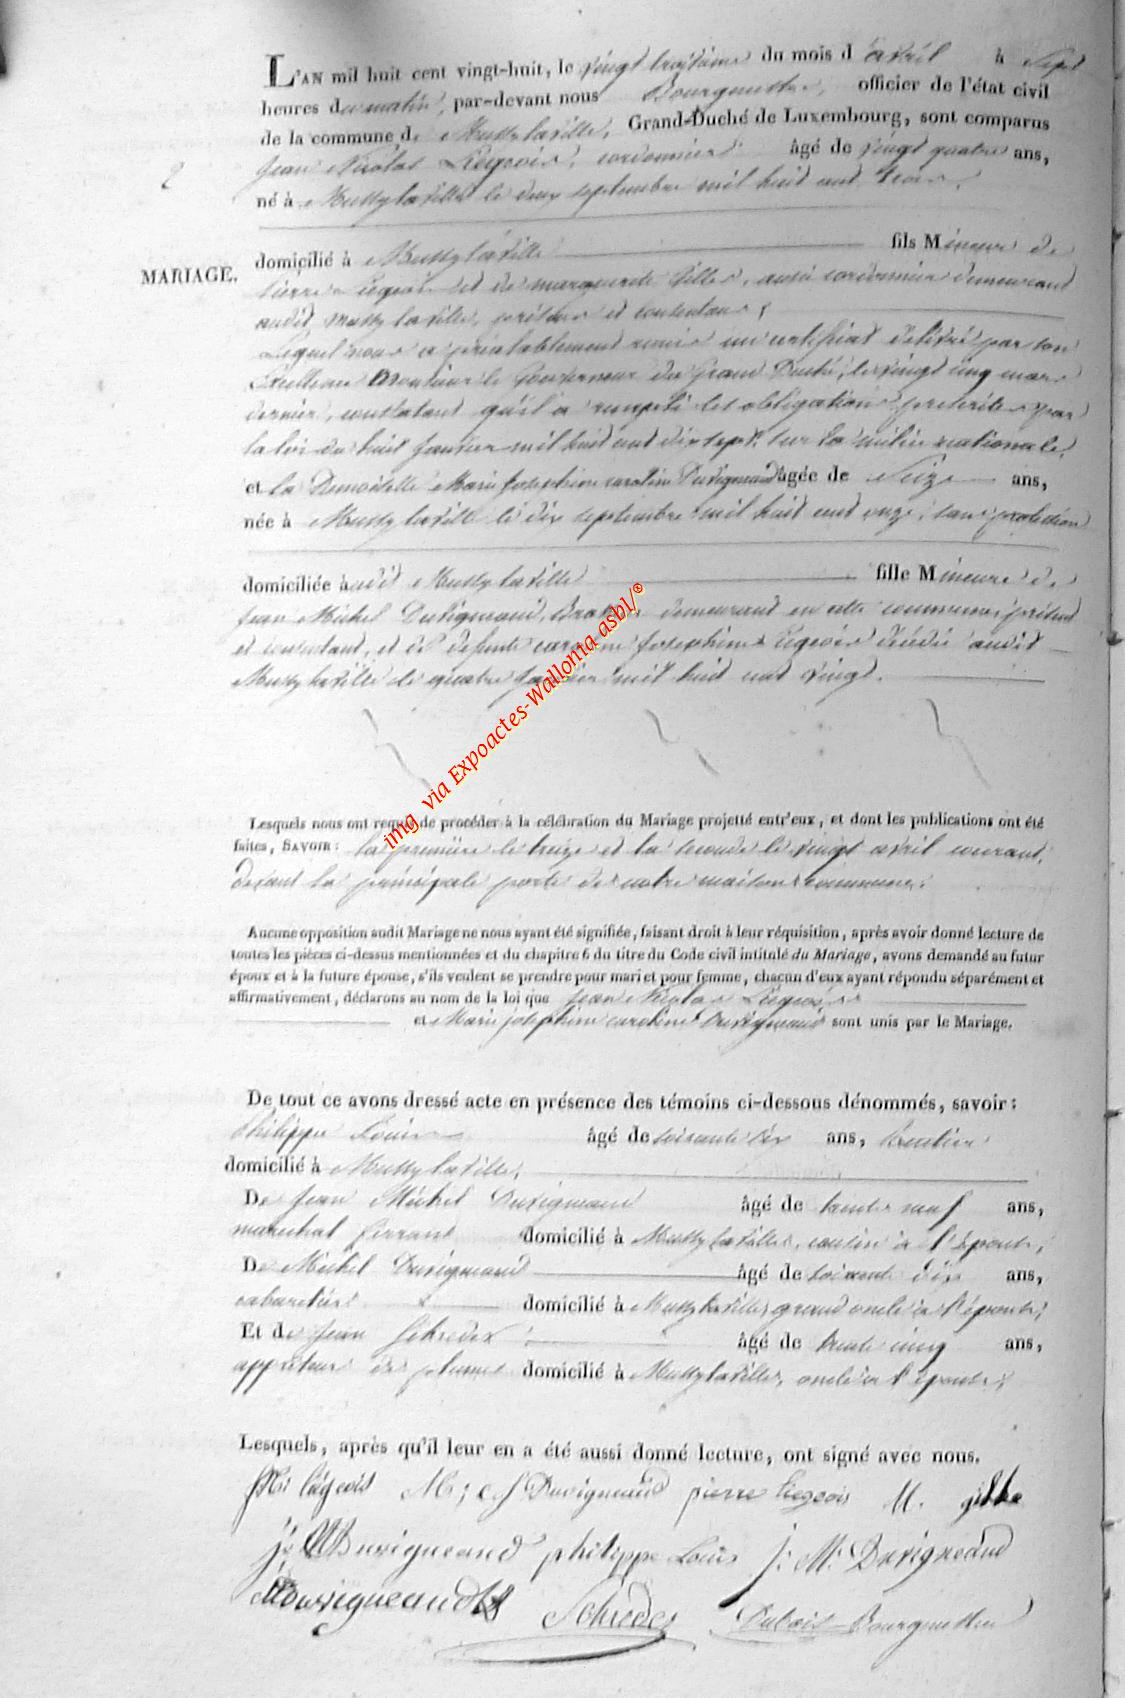 L'AN mil huit cent vingt-huit, le vingt troisième du mois d'avril à sept
heures du matin, par-devant nous Bourguelle, officier de l'état civil
de la commune de Mussy la ville, Grand-Duché de Luxembourg, sont comparus
2
Jean Nicolas Liegeois, cordonnier âgé de vingt quatre ans,
né à Mussy la ville le deux septembre mil huit cent trois,
MARIAGE.
domicilié à Mussy la ville fils Mineur de
pierre Liegeois et de marguerite Gilles, aussi cordonnier demeurant
audit Mussy la ville, présens et consentans ;
Lequel nous a préalablement remis un certificat délivré par son
Excellence Monsieur le Gouverneur du Grand Duché, le vingt cinq mars
dernier, constatant qu'il a rempli les obligations prescrites par
la loi du huit Janvier mil huit cent dix sept, sur la milice nationale,
et la Demoiselle Marie Josephine caroline Duvigneaud âgée de Seize ans,
née à Mussy la ville le dix septembre mil huit cent onze, sans profession
domiciliée à audit Mussy la ville fille Mineure de
Jean Michel Duvigneaud, demeurant en cette commune, présent
et consentant, et de defunte caroline Josephine Liegeois décédée audit
Mussy la ville le quatre Janvier mil huit cent vingt.
img via Expoactes-Wallonia asbl/®
Lesquels nous ont requis de procéder à la célébration du Mariage projetté entr'eux, et dont les publications ont été
faites, SAVOIR : la première le treize et la seconde le vingt avril courant,
devant la principale porte de notre maison commune.
Aucune opposition audit Mariage ne nous ayant été signifiée, faisant droit à leur réquisition, après avoir donné lecture de
toutes les pièces ci-dessus mentionnées et du chapitre 6 du titre du Code civil intitulé du Mariage, avons demandé au futur
époux et à la future épouse, s'ils veulent se prendre pour mari et pour femme, chacun d'eux ayant répondu séparément et
affirmativement, déclarons au nom de la loi que Jean Nicolas Liegeois
et Marie josephine caroline Duvigneaud sont unis par le Mariage.
De tout ce avons dressé acte en présence des témoins ci-dessous dénommés, savoir :
Philippe Louis âgé de soixante dix ans, Rentier
domicilié à Mussy la ville,
De Jean Michel Duvigneaud âgé de trente neuf ans,
marechal ferrant domicilié à Mussy la ville, cousin à l'épouse ;
De Michel Duvigneaud âgé de soixante dix ans,
cabaretier domicilié à Mussy la ville, grand oncle à l'épouse ;
Et de Jean Schreder âgé de trente cinq ans,
appreteur de plumes domicilié à Mussy la ville, oncle à l'épouse ;
Lesquels, après qu'il leur en a été aussi donné lecture, ont signé avec nous.
JN: liégeois M; C; J Duvigneaud pierre liegeois M. gille
J M Duvigneaud philippe Louis J: M: Duvigneaud
MDuvigneaud Schreder Dubois Bourguelle